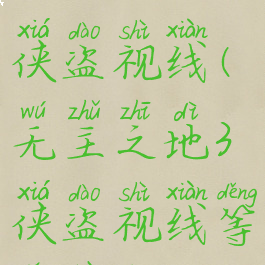 xiá dào shì xiàn
侠盗视线(
wú zhǔ zhī dì
无主之地3
xiá dào shì xiàn děng
侠盗视线等